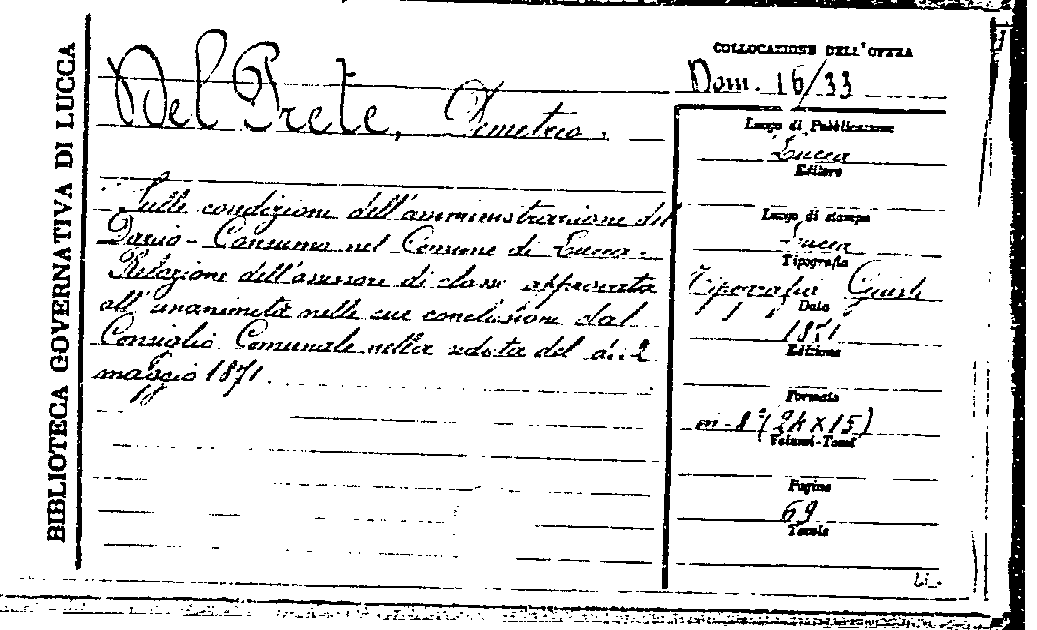 BIBLIOTECA GOVERNATIVA DI LUCCA
Del Prete, Demetrio.
Sulle condizioni dell'amministrazione del
Dazio-Consumo nel Comune di Lucca.
Relazione dell'assessore di classe approvata
all'unanimità nelle sue conclusioni dal
Consiglio Comunale nella seduta del dì 2
maggio 1871.
COLLOCAZIONE DELL'OPERA
Dom. 16/33
Luogo di Pubblicazione
Lucca
Editore
Luogo di stampa
Lucca
Tipografia
Tipografia Giusti
Data
1871
Edizione
Formato
in-8° (24X15)
Volumi-Tomi
Pagine
69
Tavole
Li.